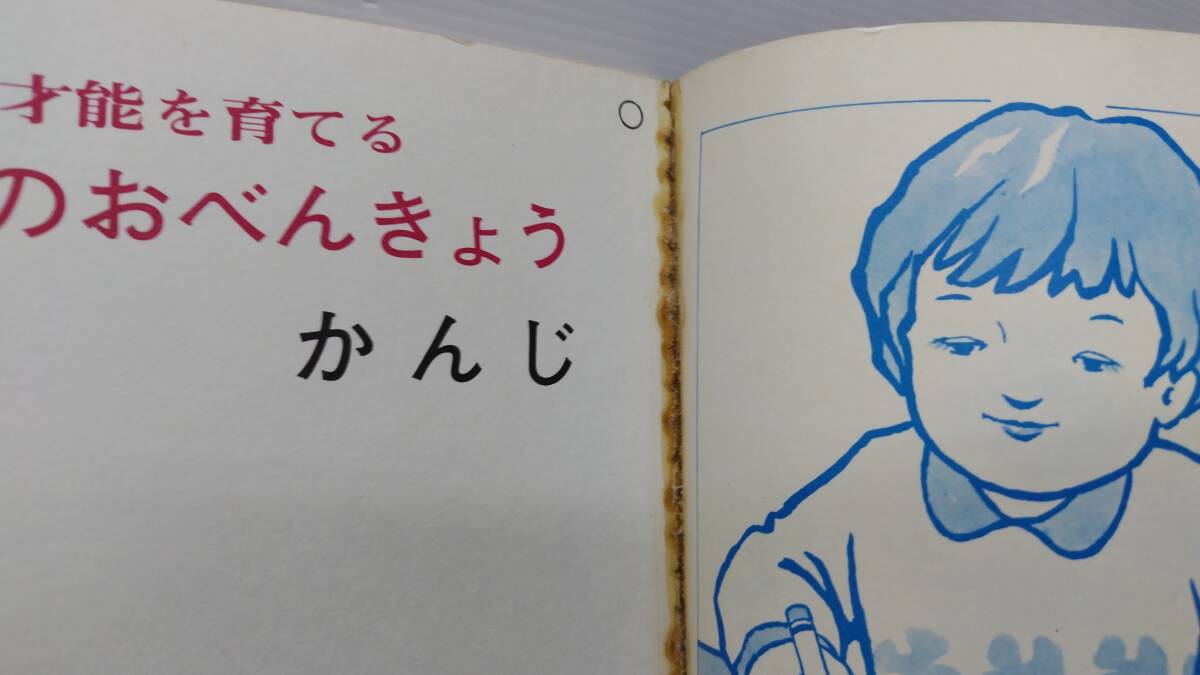 才能を育てる
のおべんきょう
かんじ